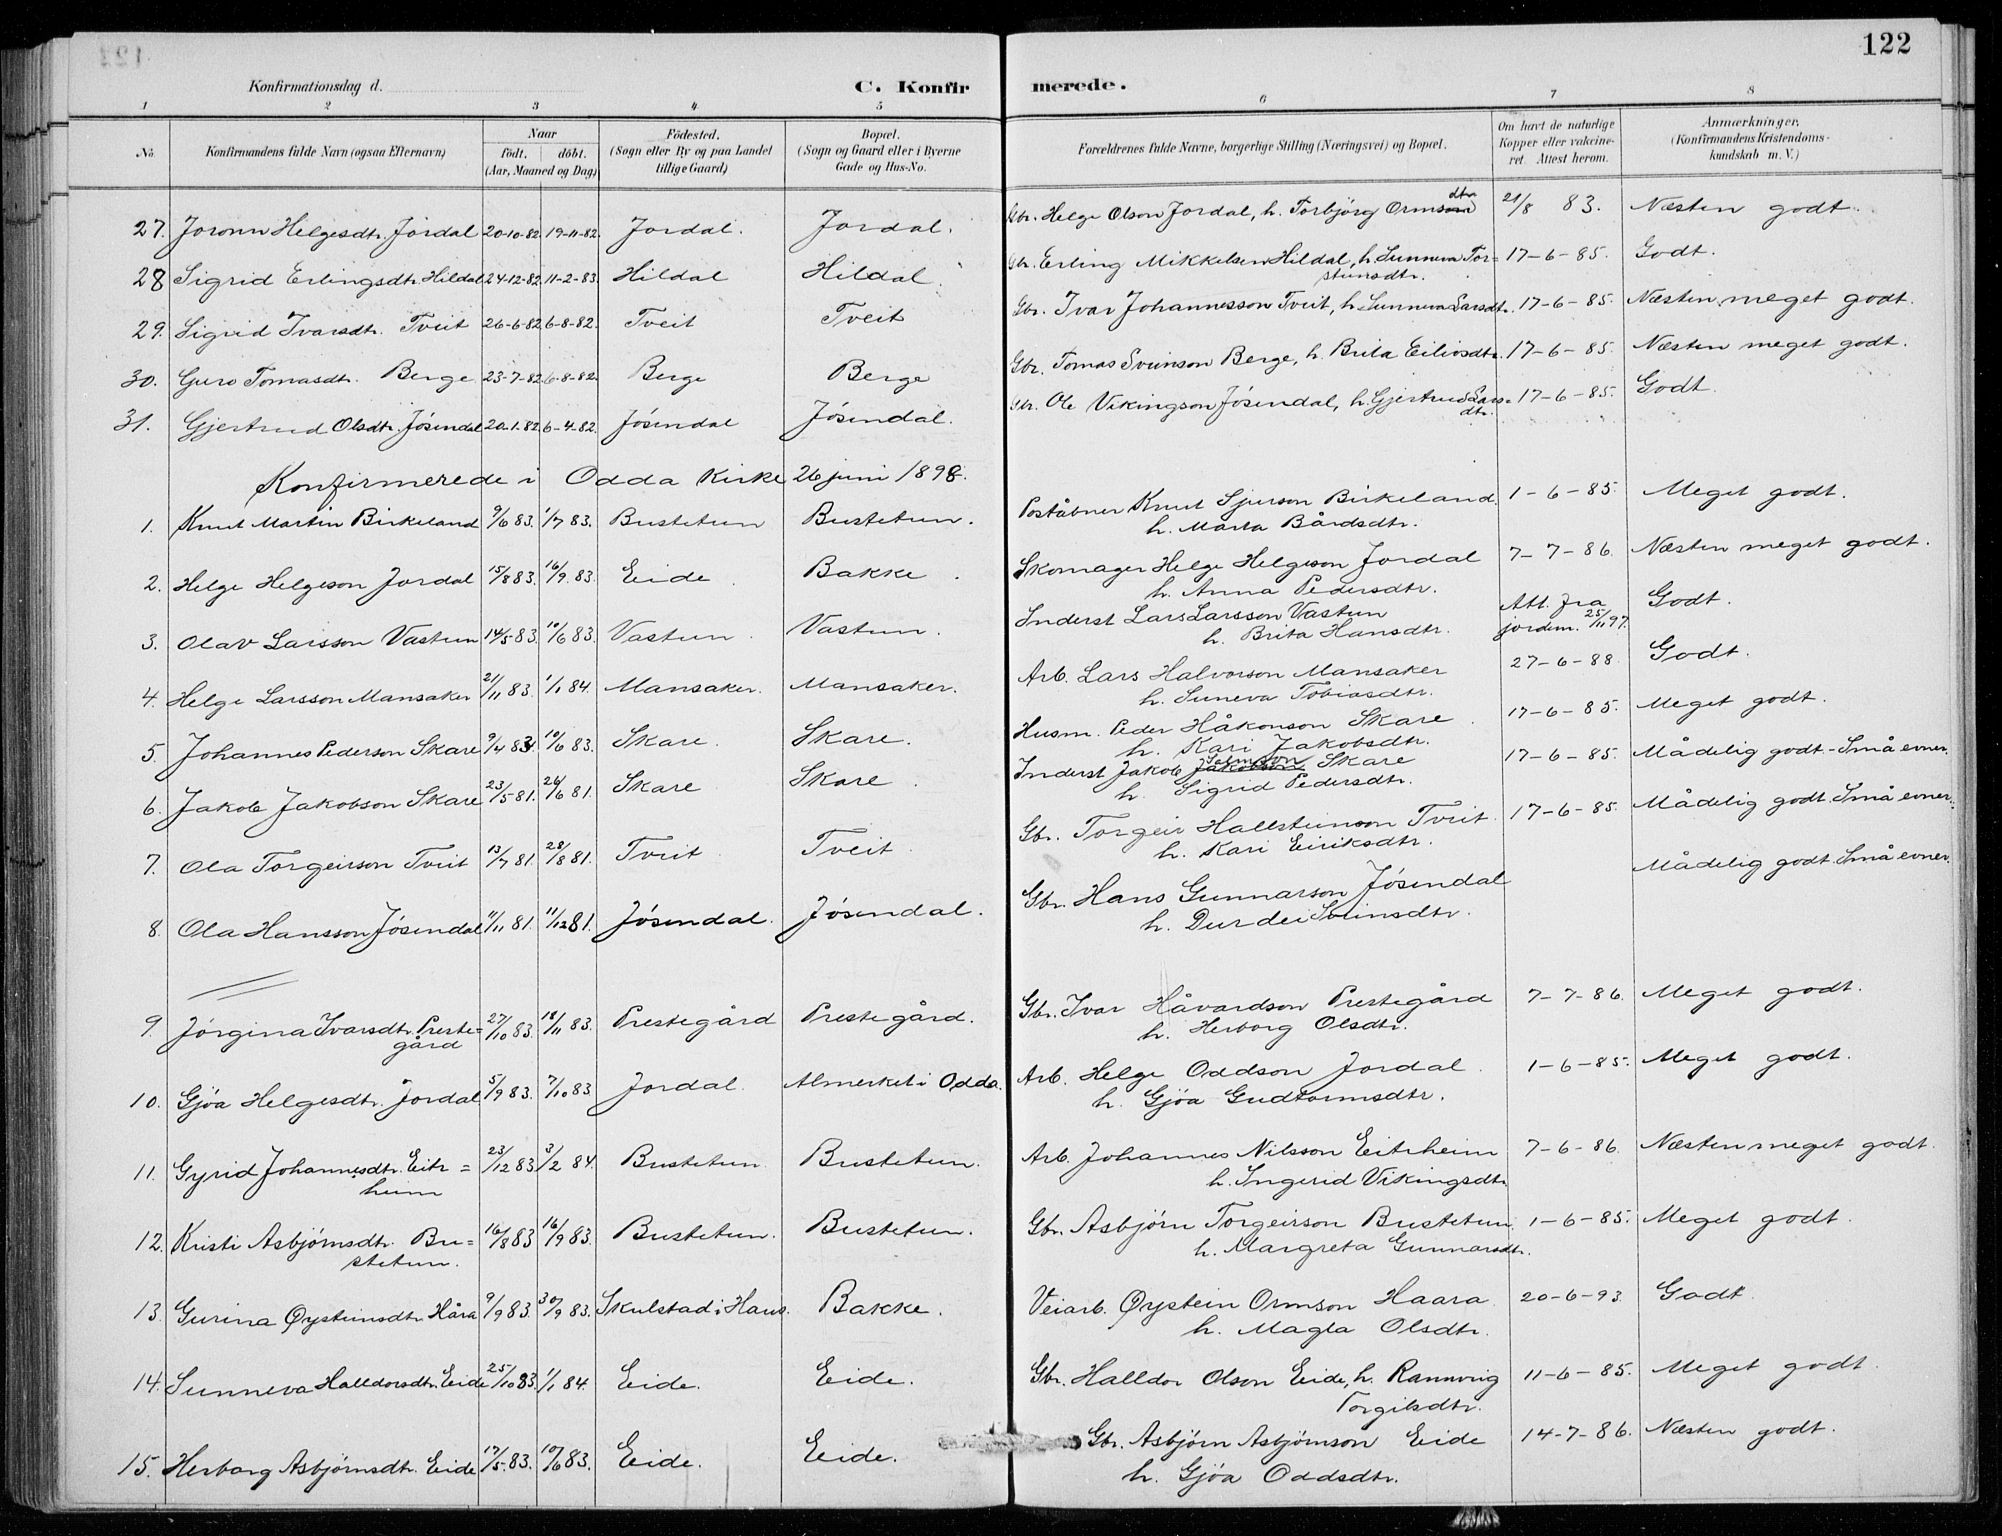 122
Konfirmationsdag d. C. Konfirmerede.
1 2 3 4 5 6 7 8
No. Konfirmandens fulde Navn (ogsaa Efternavn) Naar født. døbt. (Aar, Maaned og Dag) Födested. (Sogn eller By og paa Landet tillige Gaard) Bopæl. (Sogn og Gaard eller i Byerne Gade og Hus-No. Forældrenes fulde Navne, borgerlige Stilling (Næringsvei) og Bopæl. Om havt de naturlige Kopper eller vakcineret. Attest herom. Anmærkninger. (Konfirmandens Kristendomskundskab m. V.)
27. Joronn Helgesdtr. Jordal 20-10-82. 19-11-82. Jordal. Jordal. Gbr. Helge Olson Jordal, h. Torbjørg Ormsdtr 21/8 83. Næsten godt.
28 Sigrid Erlingsdtr. Hildal 24-12-82. 11-2-83. Hildal Hildal. Gbr. Erling Mikkelsen Hildal, h. Sunneva Tor=
steinsdtr. 17-6-85. Godt.
29. Sigrid Ivarsdtr. Tveit 26-6-82. 6-8-82. Tveit Tveit Gbr. Ivar Johannesson Tveit, h. Sunneva Larsdtr. 17-6-85. Næsten meget godt.
30. Guro Tomasdtr. Berge 23-7-82. 6-8-82. Berge Berge Gbr. Tomas Sveinson Berge, h. Brita Eilivsdtr. 17-6-85. Næsten meget godt.
31. Gjertrud Olsdtr. Jósendal 20-1-82. 6-4-82. Jósendal Jósendal. Gbr. Ole Vikingson Jósendal, h. Gjertrud Lars=
dtr. 17-6-85. Godt
Konfirmerede i Odda Kirke 26 juni 1898.
1. Knut Martin Birkeland 9/6 83. 1/7 83. Bustetun Bustetun. Poståbner Knut Sjurson Birkeland. 1-6-85. Meget godt.
h. Marta Bårdsdtr.
2. Helge Helgeson Jordal 15/8 83. 16/9 83. Eide Bakke. Skomager Helge Helgeson Jordal 7-7-86. Næsten meget godt.
h. Anna Pedersdtr.
3. Olav Larsson Vastun 14/5 83. 10/6 83. Vastun Vastun. Inderst Lars Larsson Vastun Att. fra Godt.
h. Brita Hansdtr. jordm. 25/11 97.
4. Helge Larsson Mansaker 21/11 83. 1/1 84. Mansaker. Mansaker. Arb. Lars Halvorson Mansaker 27-6-88. Godt.
h. Suneva Tobiasdtr.
5. Johannes Pederson Skare 9/4 83. 10/6 83. Skare. Skare. Husm. Peder Håkonson Skare. 17-6-85. Meget godt.
h. Kari Jakobsdtr.
6. Jakob Jakobson Skare 23/5 81. 26/6 81. Skare Skare. Inderst Jakob Skare 17-6-85. Mådelig godt - Små evner.
h. Sigrid Pedersdtr.
7. Ola Torgeirson Tveit 13/7 81. 28/8 81. Tveit Tveit. Gbr. Torgeir Hallsteinson Tveit. 17-6-85. Mådelig godt. Små evner.
h. Kari Eiriksdtr.
8. Ola Hansson Jósendal 11/11 81. 11/12 81. Jósendal. Jósendal. Gbr. Hans Gunnarson Jósendal Mådelig godt. Små evner.
h. Durdei Sveinsdtr.
9. Jórgina Ivarsdtr. Preste=
gård 27/10 83. 18/11 83. Prestegård Prestegård. Gbr. Ivar Håvardson Prestegård 7-7-86. Meget godt.
h. Herborg Olsdtr.
10. Gjóa Helgesdtr. Jordal 5/9 83. 7/10 83 Jordal. Almerket i Odda. Arb. Helge Oddson Jordal. 1-6-85. Meget godt.
h. Gjóa Gudtormsdtr.
11. Gyrid Johannesdtr. Eitr=
heim 23/12 83. 3/2 84. Bustetun Bustetun. Arb. Johannes Nilsson Eitrheim 7-6-86. Næsten meget godt.
h. Ingerid Vikingsdtr.
12. Kristi Asbjórnsdtr. Bu=
stetun. 16/8 83 16/9 83. Bustetun. Bustetun. Gbr. Asbjórn Torgeirson Bustetun 1-6-85. Meget godt.
h. Margreta Gunnarsdtr.
13. Gurina Øysteinsdtr. Håra 9/9 83. 30/9 83. Skulstad i Haus. Bakke. Veiarb. Øystein Ormson Haara 20-6-93. Godt.
h. Magla Olsdtr.
14. Sunneva Halldorsdtr. Eide 25/10 83. 1/1 84. Eide. Eide. Gbr. Halldor Olson Eide, h. Rannveig 11-6-85. Meget godt.
Torgilsdtr.
15. Herborg Asbjórnsdtr. Eide 17/5 83. 10/6 83. Eide. Eide. Gbr. Asbjórn Asbjórnson Eide 14-7-86. Næsten godt.
h. Gjóa Oddsdtr.